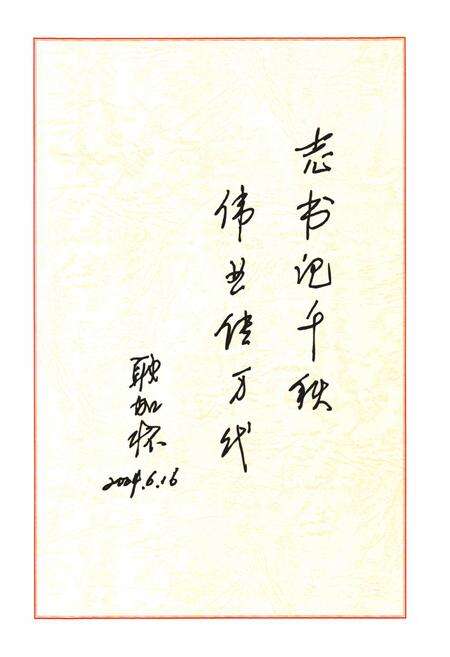 志书记千秋
伟业传万代
耿加怀
2024.6.16